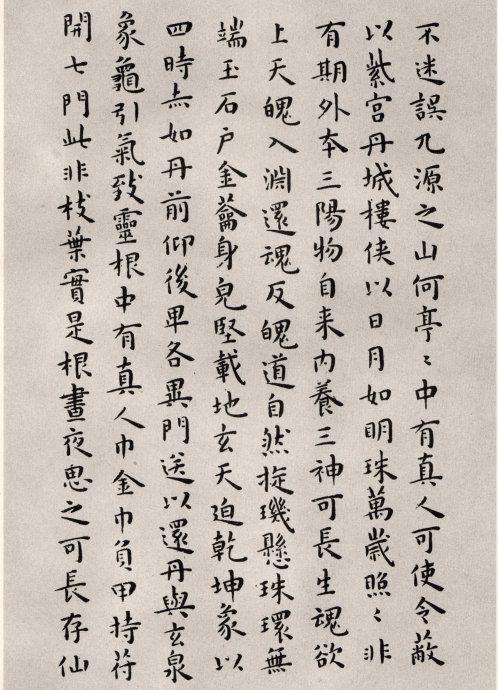 不迷誤九源之山何亭〻中有真人可使令蔽
以紫宮丹城樓侠以日月如明珠萬歲照〻非
有期外夲三陽物自来内養三神可長生魂欲
上天魄入淵還魂反魄道自然㨁璣懸珠環無
端玉石戶金蘥身皃堅載地玄天迫乾坤象以
四時赤如丹前仰後卑各異門送以還丹與玄泉
象龜引氣致靈根中有真人巾金巾負甲持苻
開七門此非枝葉實是根晝夜思之可長存仙